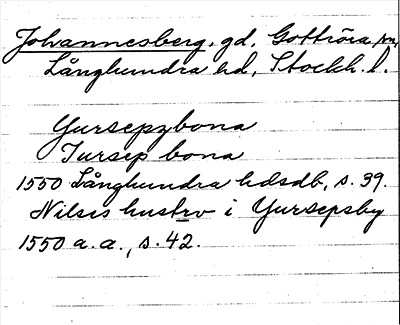 Johannesberg, gd, Gottröra sn,
Långhundra hd, Stockh. l.
Yursepzbona
Jursep bona
1550 Långhundra hdsdb, s. 39.
Nilsis hustrv i Yursepsby
1550 a. a., s. 42.